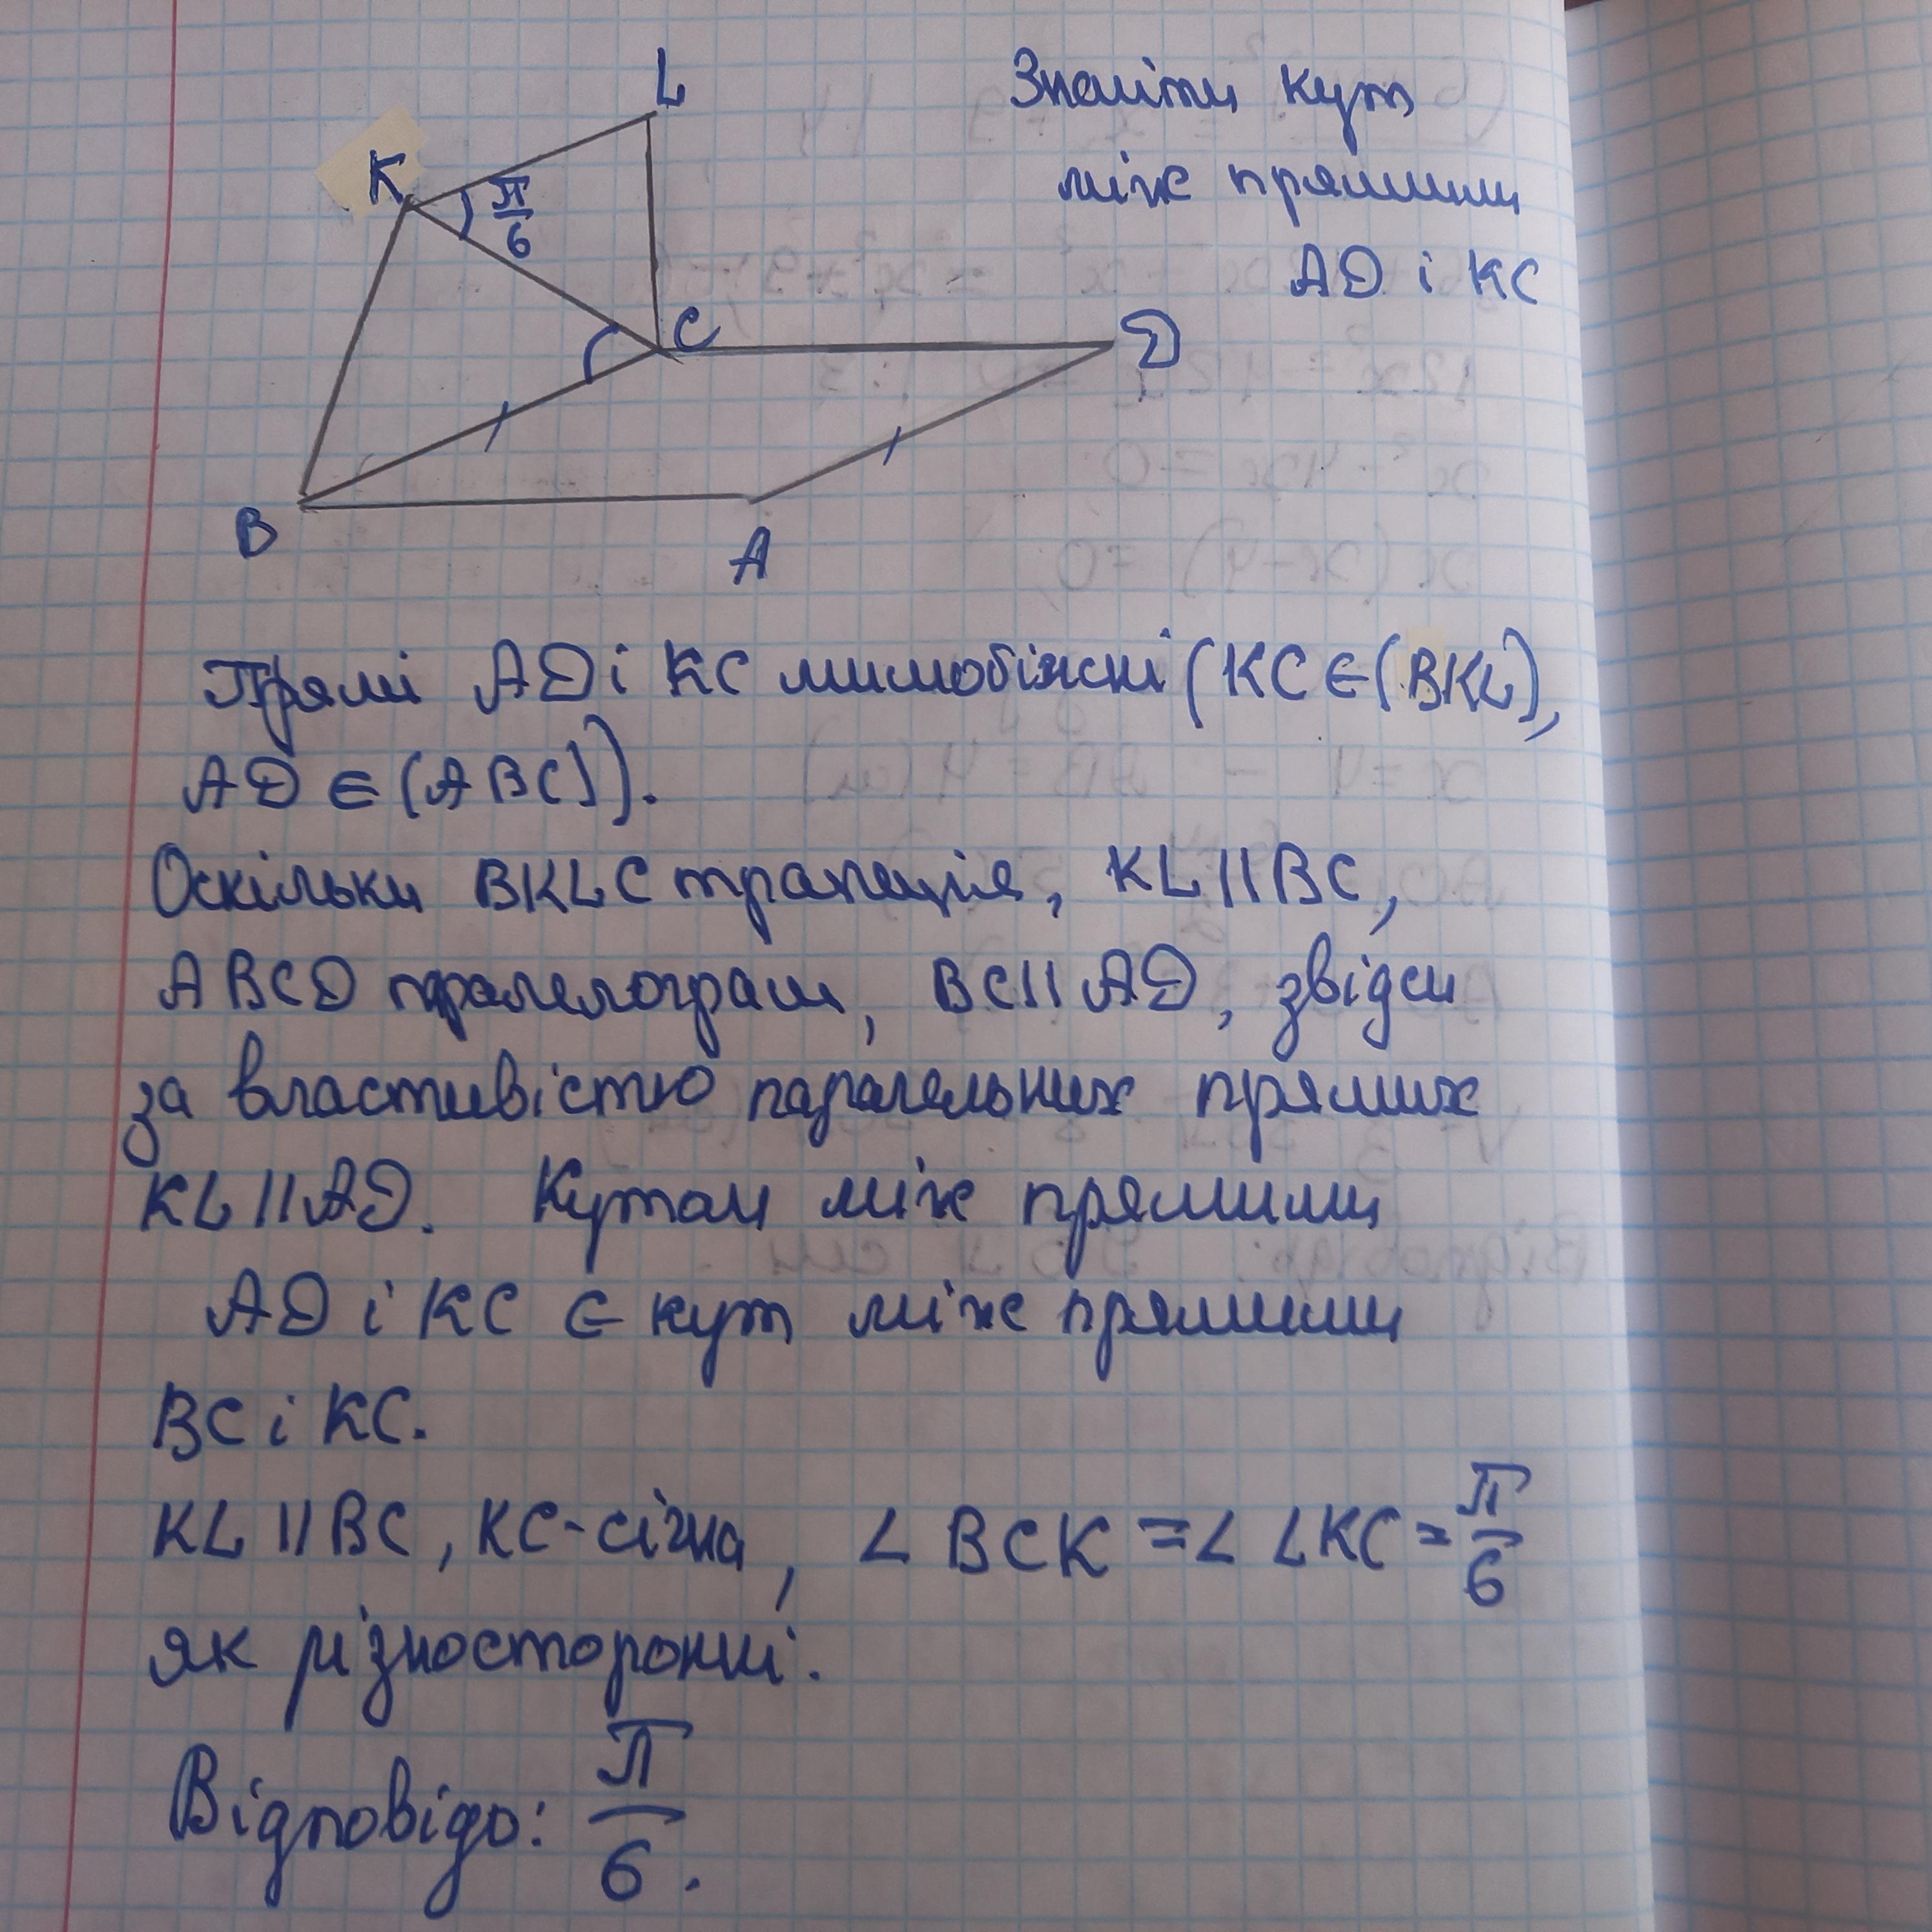 L
K
π/6
C
D
B
A
Знайти кут
між прямими
AD і KC
Прямі AD і KC мимобіжні (KC∈(BKL),
AD∈(ABC)).
Оскільки BKLC трапеція, KL||BC,
ABCD паралелограм, BC||AD, звідси
за властивістю паралельних прямих
KL||AD. Кутом між прямими
AD і KC є кут між прямими
BC і KC.
KL||BC, KC-січна, ∠BCK=∠LKC=π/6
як різносторонні.
Відповідь: π/6.